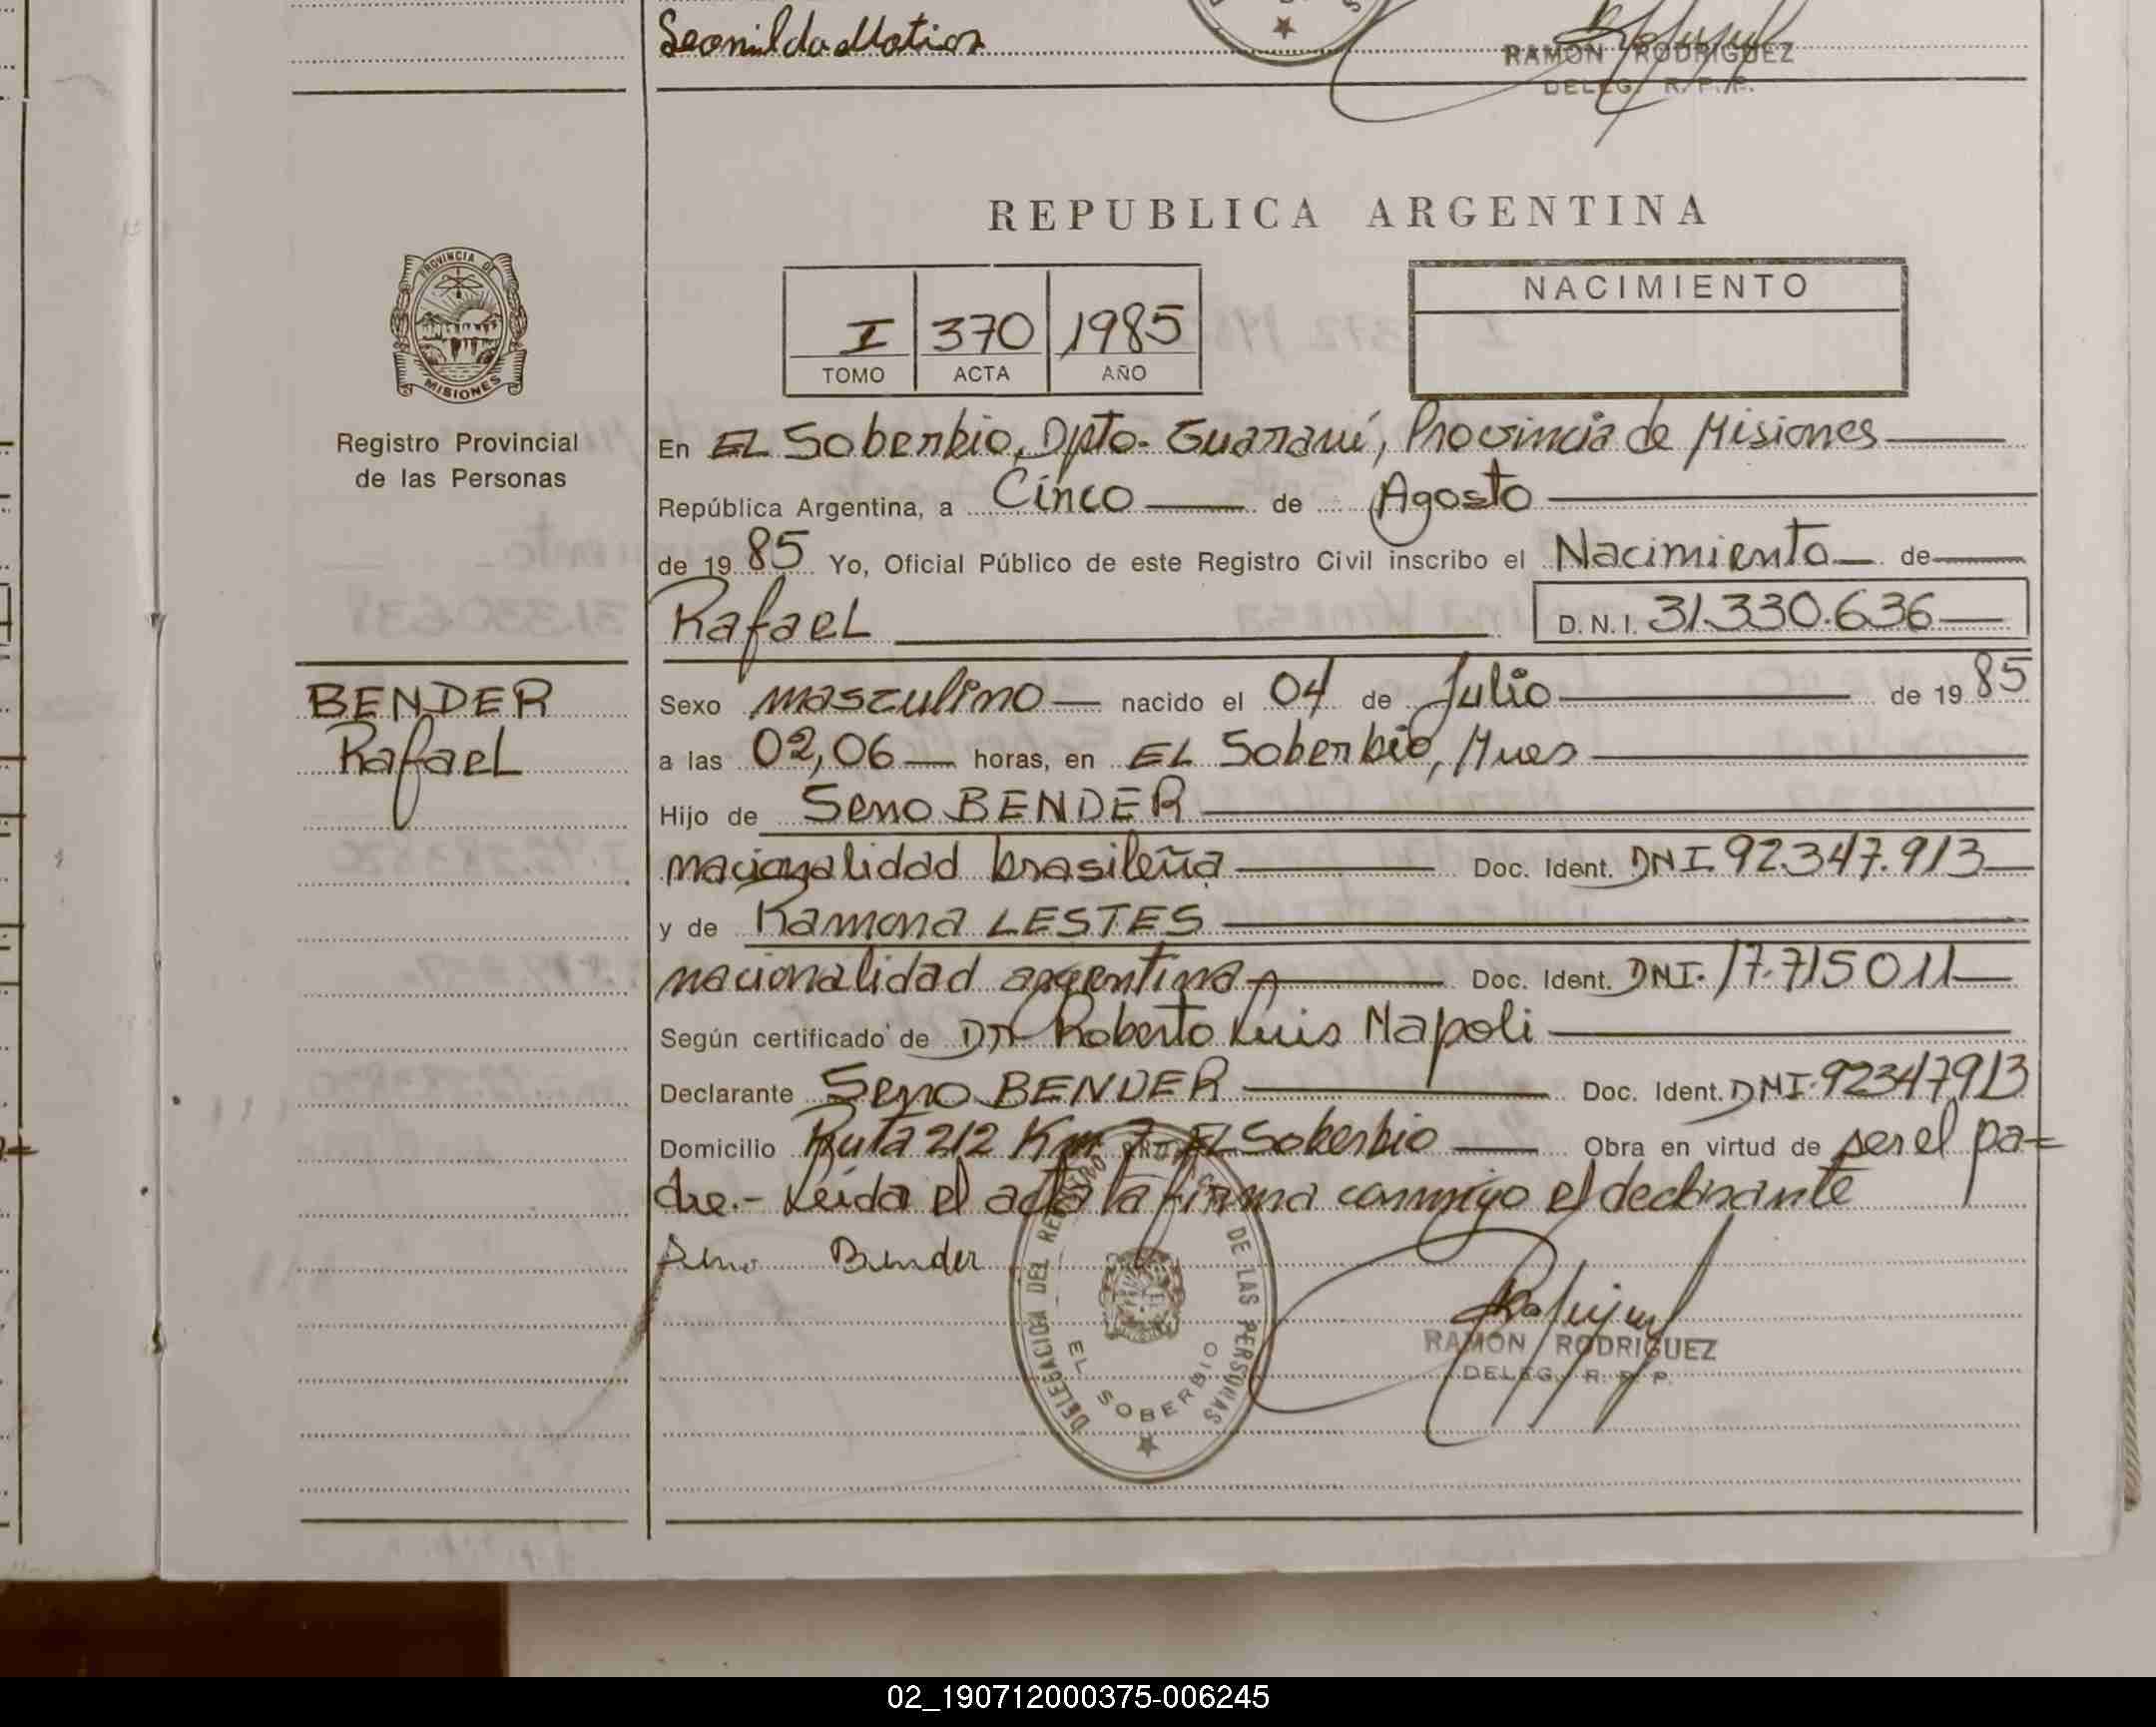 Leonilda Matioz
RAMON RODRIGUEZ
DELEG. R. P. P.
REPUBLICA ARGENTINA
PROVINCIA DE
MISIONES
Registro Provincial
de las Personas
I 370 1985
TOMO ACTA AÑO
NACIMIENTO
En EL Soberbio, Dpto. Guaraní, Provincia de Misiones
República Argentina, a Cinco de Agosto
de 1985 Yo, Oficial Público de este Registro Civil inscribo el Nacimiento de
Rafael D.N.I. 31.330.636
BENDER
Rafael
Sexo masculino nacido el 04 de Julio de 1985
a las 02,06 horas, en EL Soberbio, Mnes
Hijo de Seno BENDER
nacionalidad brasileña Doc. Ident. DNI. 92.347.913
y de Ramona LESTES
nacionalidad argentina Doc. Ident. DNI. 17.715011
Según certificado de Dr Roberto Luis Napoli
Declarante Seno BENDER Doc. Ident. DNI. 92347913
Domicilio Ruta 212 Km 7 EL Soberbio Obra en virtud de ser el pa=
dre.- Leída el acta la firma conmigo el declarante
Seno Bender
DELEGACION DEL REGISTRO PROV. DE LAS PERSONAS
EL SOBERBIO
RAMON RODRIGUEZ
DELEG. R. P. P.
02_190712000375-006245